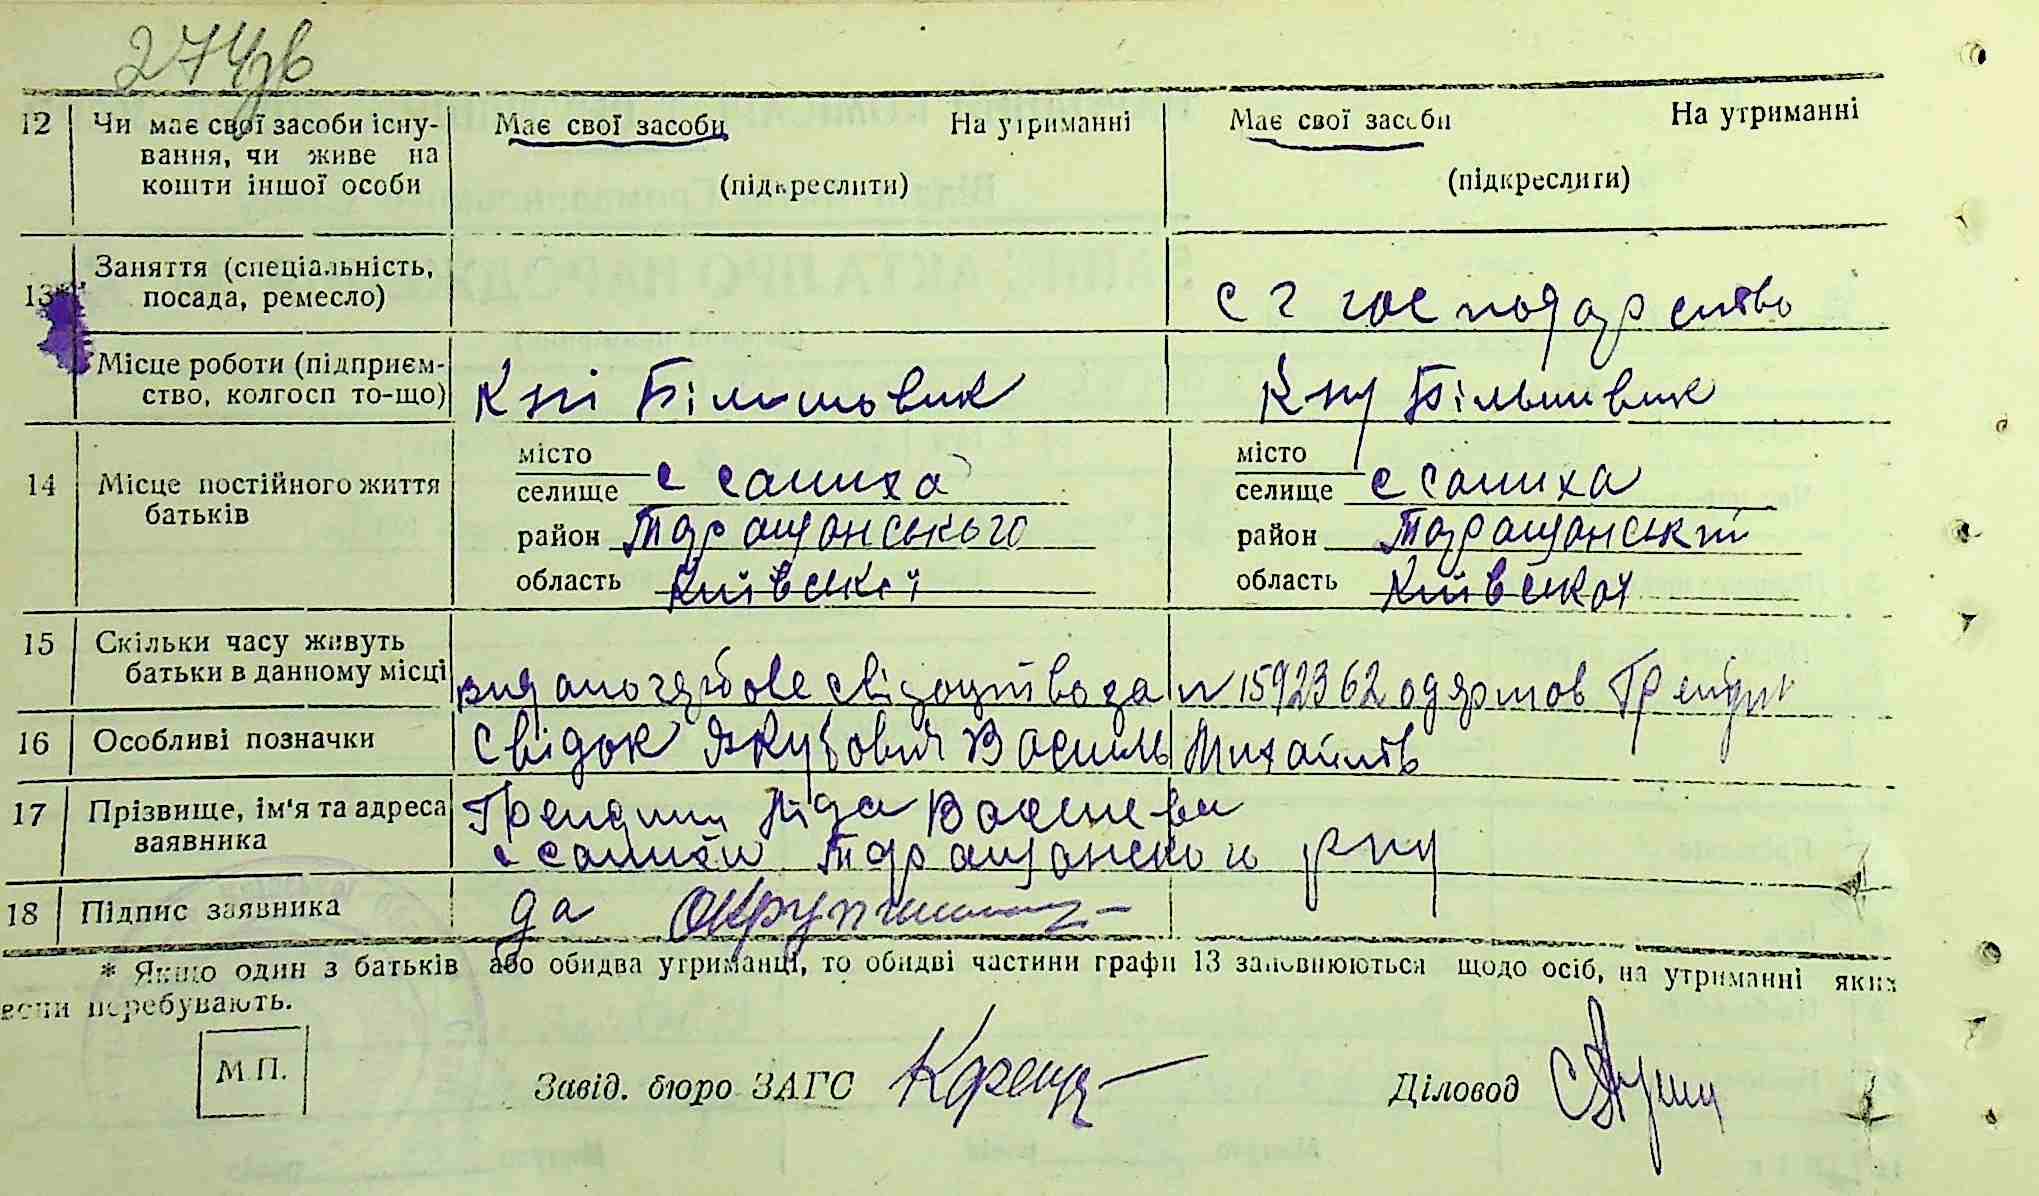 274зв
12 Чи має свої засоби існу- Має свої засоби На утриманні Має свої засоби На утриманні
вання, чи живе на
кошти іншої особи (підкреслити) (підкреслити)
Заняття (спеціальність,
13* посада, ремесло) с г господарство
Місце роботи (підприєм-
ство, колгосп то-що) Більшовик Більшовик
місто місто
14 Місце постійного життя селище с салиха селище с салиха
батьків
район Таращанського район Таращанський
область Київської область Київської
15 Скільки часу живуть
батьки в данному місці видано свідоцтво за n 1592362 одержав
16 Особливі позначки Свідок Якубович Василь Михайлів
17 Прізвище, ім'я та адреса Ліда
заявника с салихи Таращанского рну
18 Підпис заявника да
* Якщо один з батьків або обидва утриманці, то обидві частини графи 13 заповнюються щодо осіб, на утриманні яких
вони перебувають.
М.П. Завід. бюро ЗАГС Діловод